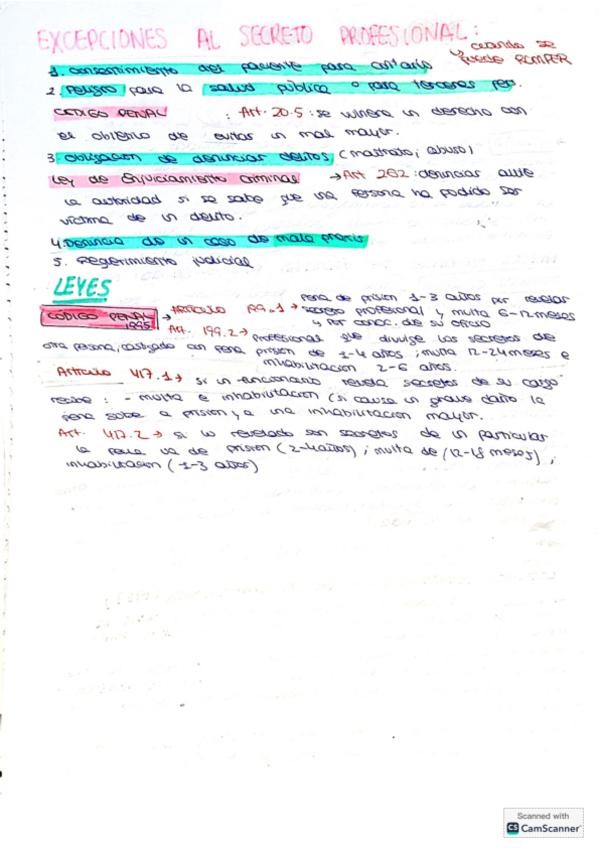 EXCEPCIONES AL SECRETO PROFESIONAL:
↳ cuando se puede ROMPER
1. consentimiento del paciente para contarlo
2. Peligro para la salud pública o para terceras per.
CODIGO PENAL : Art. 20.5: se vulnera un derecho con
el objetivo de evitar un mal mayor.
3. Obligación de denunciar delitos, (maltrato, abuso)
Ley de Enjuiciamiento criminal → Art 262: denunciar ante
la autoridad si se sabe que una persona ha podido ser
víctima de un delito.
4. Denuncia de un caso de mala praxis
5. Requerimiento judicial
LEYES
CODIGO PENAL 1995 → ARTICULO 199.1 → pena de prision 1-3 años por revelar
secreto profesional y multa 6-12 meses
y por conoc. de su oficio
Art. 199.2 → Profesional que divulge los secretos de
otra persona, castigado con pena prision de 1-4 años; multa 12-24 meses e
inhabilitación 2-6 años.
Articulo 417.1 → si un funcionario revela secretos de su cargo
recibe: - multa e inhabilitación (si causa un grave daño la
pena sube a prision y a una inhabilitación mayor.
Art. 417.2 → si lo revelado son secretos de un particular
la pena va de prision (2-4 años); multa de (12-18 meses);
inhabilitación (1-3 años)
Scanned with
CS CamScanner